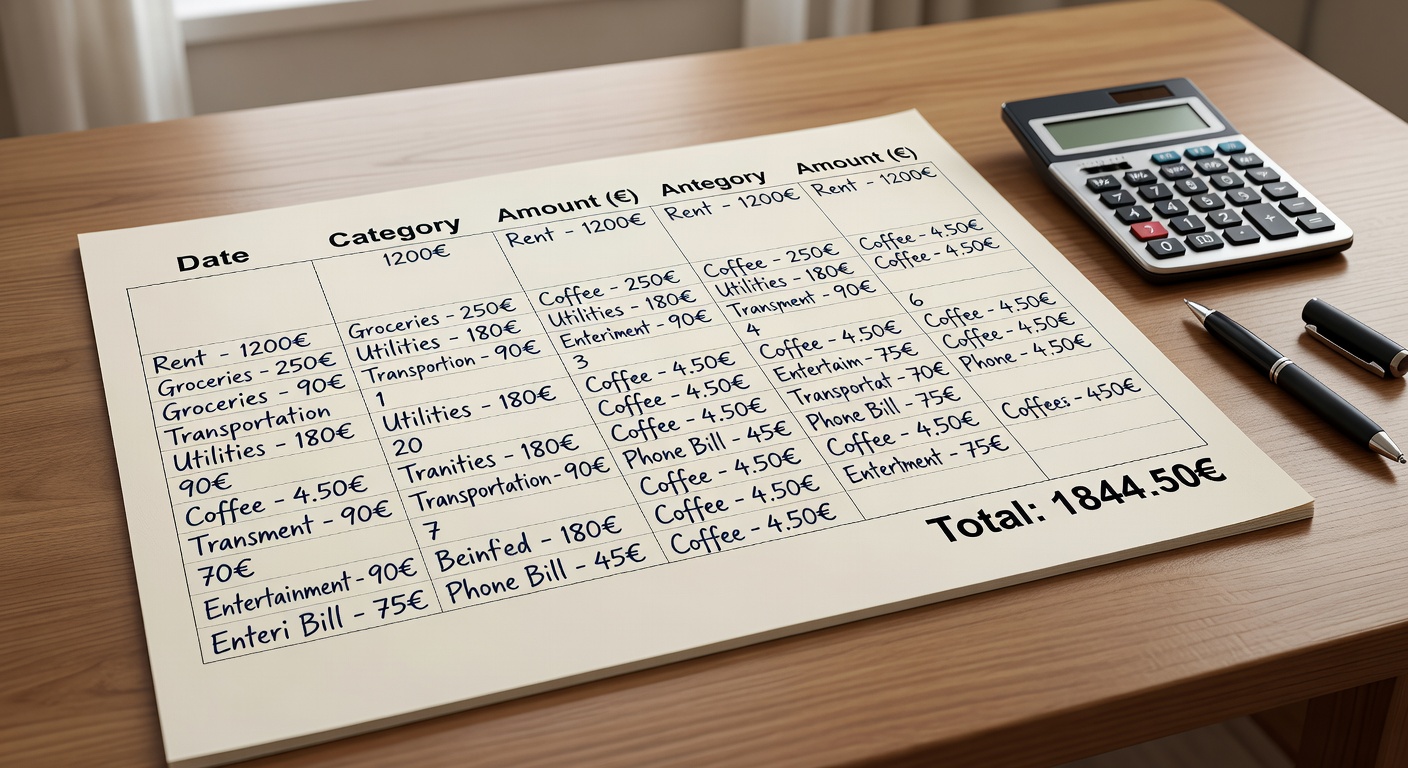 Date
Category
Amount (€)
Antegory
Amount (€)
Rent - 1200€
Groceries - 250€
Groceries - 90€
Transportation
Utilities - 180€
90€
Coffee - 4.50€
Transment - 90€
70€
Entertainment - 90€
Enteri Bill - 75€
1200€
Groceries - 250€
Utilities - 180€
Transportion - 90€
1
Utilities - 180€
20
Tranities - 180€
Transportation - 90€
7
Beinfed - 180€
Phone Bill - 45€
Rent - 1200€
Coffee - 250€
Utilities - 180€
Enteriment - 90€
3
Coffee - 4.50€
Coffee - 4.50€
Coffee - 4.50€
Phone Bill - 45€
Coffee - 4.50€
Coffee - 4.50€
Coffee - 4.50€
Rent - 1200€
Coffee - 250€
Utilities - 180€
Transment - 90€
4
Coffee - 4.50€
Entertaim - 75€
Transportat - 70€
Phone Bill - 75€
Coffee - 4.50€
Entertment - 75€
Rent - 1200€
Coffee - 4.50€
Coffee - 4.50€
6
Coffee - 4.50€
Coffee - 4.50€
Phone - 4.50€
Coffees - 450€
Total: 1844.50€